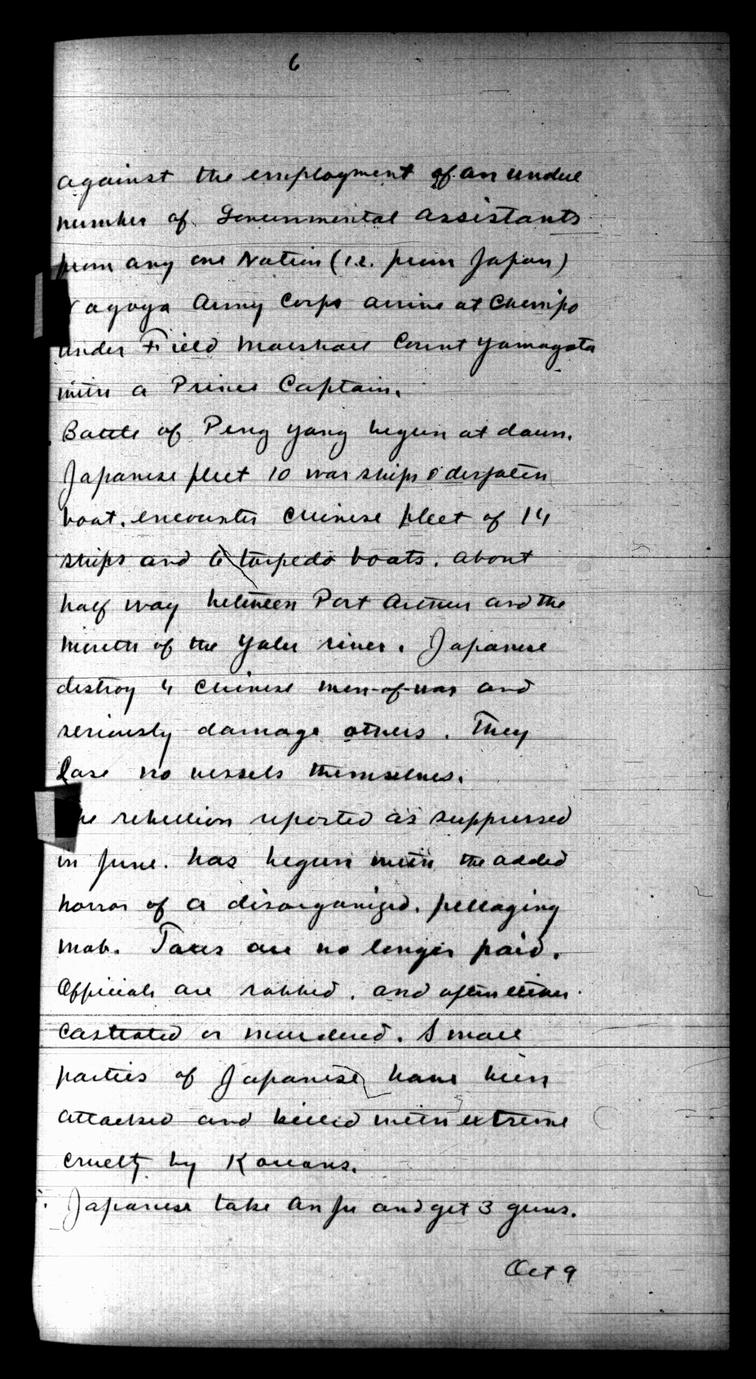 6
against the employment of an undue
number of Governmental assistants
from any one Nation (i.e. from Japan)
Nagoya Army Corps arrive at Chemipo
under Field Marshall Count Yamagata
with a Prince Captain.
Battle of Ping Yang begun at dawn.
Japanese fleet 10 warships & dispatch
boat, encounter Chinese fleet of 14
ships and 6 torpedo boats. about
half way between Port Arthur and the
mouth of the Yalu river. Japanese
destroy 4 Chinese men-of-war and
seriously damage others. They
lose no vessels themselves.
The rebellion reported as suppressed
in June. has begun with the added
horror of a disorganized, pillaging
mob. Taxes are no longer paid.
Officials are robbed, and often either
castrated or murdered. Small
parties of Japanese have been
attacked and killed with extreme
cruelty by Koreans.
Japanese take An Ju and get 3 guns.
Oct 9